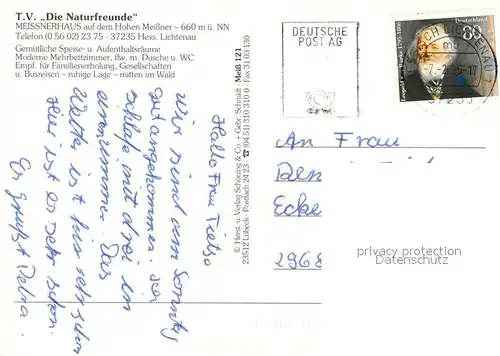 T.V. „Die Naturfreunde"
MEISSNERHAUS auf dem Hohen Meißner – 660 m ü. NN
Telefon (0 56 02) 23 75 · 37235 Hess. Lichtenau
Gemütliche Speise- u. Aufenthaltsräume
Moderne Mehrbettzimmer, tlw. m. Dusche u. WC
Empf. für Familienerholung, Gesellschaften
u. Busreisen – ruhige Lage – mitten im Wald
Hallo Frau Tietze
Wir sind am Sonntag
gut angekommen. Ich
schlafe mit drei in
einem Zimmer. Das
Wetter ist bis sehr schön
Hier ist es sehr schön.
Es grüßt Petra.
© Horst u. Verlag Schöning & Co. + Gebr. Schmidt · Meiß 121
23512 Lübeck · Postfach 24 23 ☎ (04 51) 310 310 0 · Fax 31 03 130
DEUTSCHE
POST AG
Deutschland
80
LICHTENAU
An Frau
Ecke
2968
privacy protection
Datenschutz